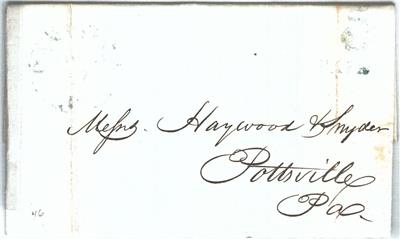 Messrs. Haywood & Snyder
Pottsville
Pa
46